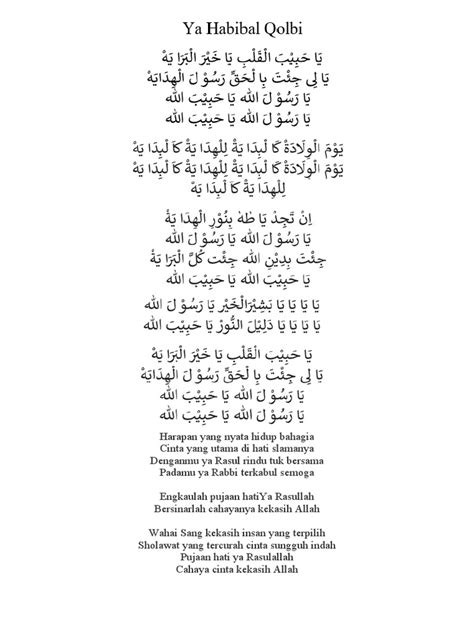 Ya Habibal Qolbi
يَا حَبِيْبَ الْقَلْبِ يَا خَيْرَ الْبَرَا يَهْ
يَا لِى جِئْتَ بِا لْحَقِّ رَسُوْ لَ الْهِدَايَهْ
يَا رَسُوْ لَ الله يَا حَبِيْبَ الله
يَا رَسُوْ لَ الله يَا حَبِيْبَ الله
يَوْمَ الْوِلَادَةْ كَا لْبِدَا يَةْ لِلْهِدَا يَةْ كَا لْبِدَا يَهْ
يَوْمَ الْوِلَادَةْ كَا لْبِدَا يَةْ لِلْهِدَا يَةْ كَا لْبِدَا يَهْ
لِلْهِدَا يَةْ كَا لْبِدَا يَهْ
اِنْ تَجِدْ يَا طٰهٰ بِنُوْرِ الْهِدَا يَةْ
يَا رَسُوْ لَ الله يَا رَسُوْ لَ الله
جِئْتَ بِدِيْنِ الله جِئْت كُلَّ الْبَرَا يَةْ
يَا حَبِيْبَ الله يَا حَبِيْبَ الله
يَا يَا يَا يَا بَشِيْرَالْخَيْر يَا رَسُوْ لَ الله
يَا يَا يَا يَا دَلِيْلَ النُّوْرْ يَا حَبِيْبَ الله
يَا حَبِيْبَ الْقَلْبِ يَا خَيْرَ الْبَرَا يَهْ
يَا لِى جِئْتَ بِا لْحَقِّ رَسُوْ لَ الْهِدَايَهْ
يَا رَسُوْ لَ الله يَا حَبِيْبَ الله
يَا رَسُوْ لَ الله يَا حَبِيْبَ الله
Harapan yang nyata hidup bahagia
Cinta yang utama di hati slamanya
Denganmu ya Rasul rindu tuk bersama
Padamu ya Rabbi terkabul semoga
Engkaulah pujaan hatiYa Rasullah
Bersinarlah cahayanya kekasih Allah
Wahai Sang kekasih insan yang terpilih
Sholawat yang tercurah cinta sungguh indah
Pujaan hati ya Rasulallah
Cahaya cinta kekasih Allah